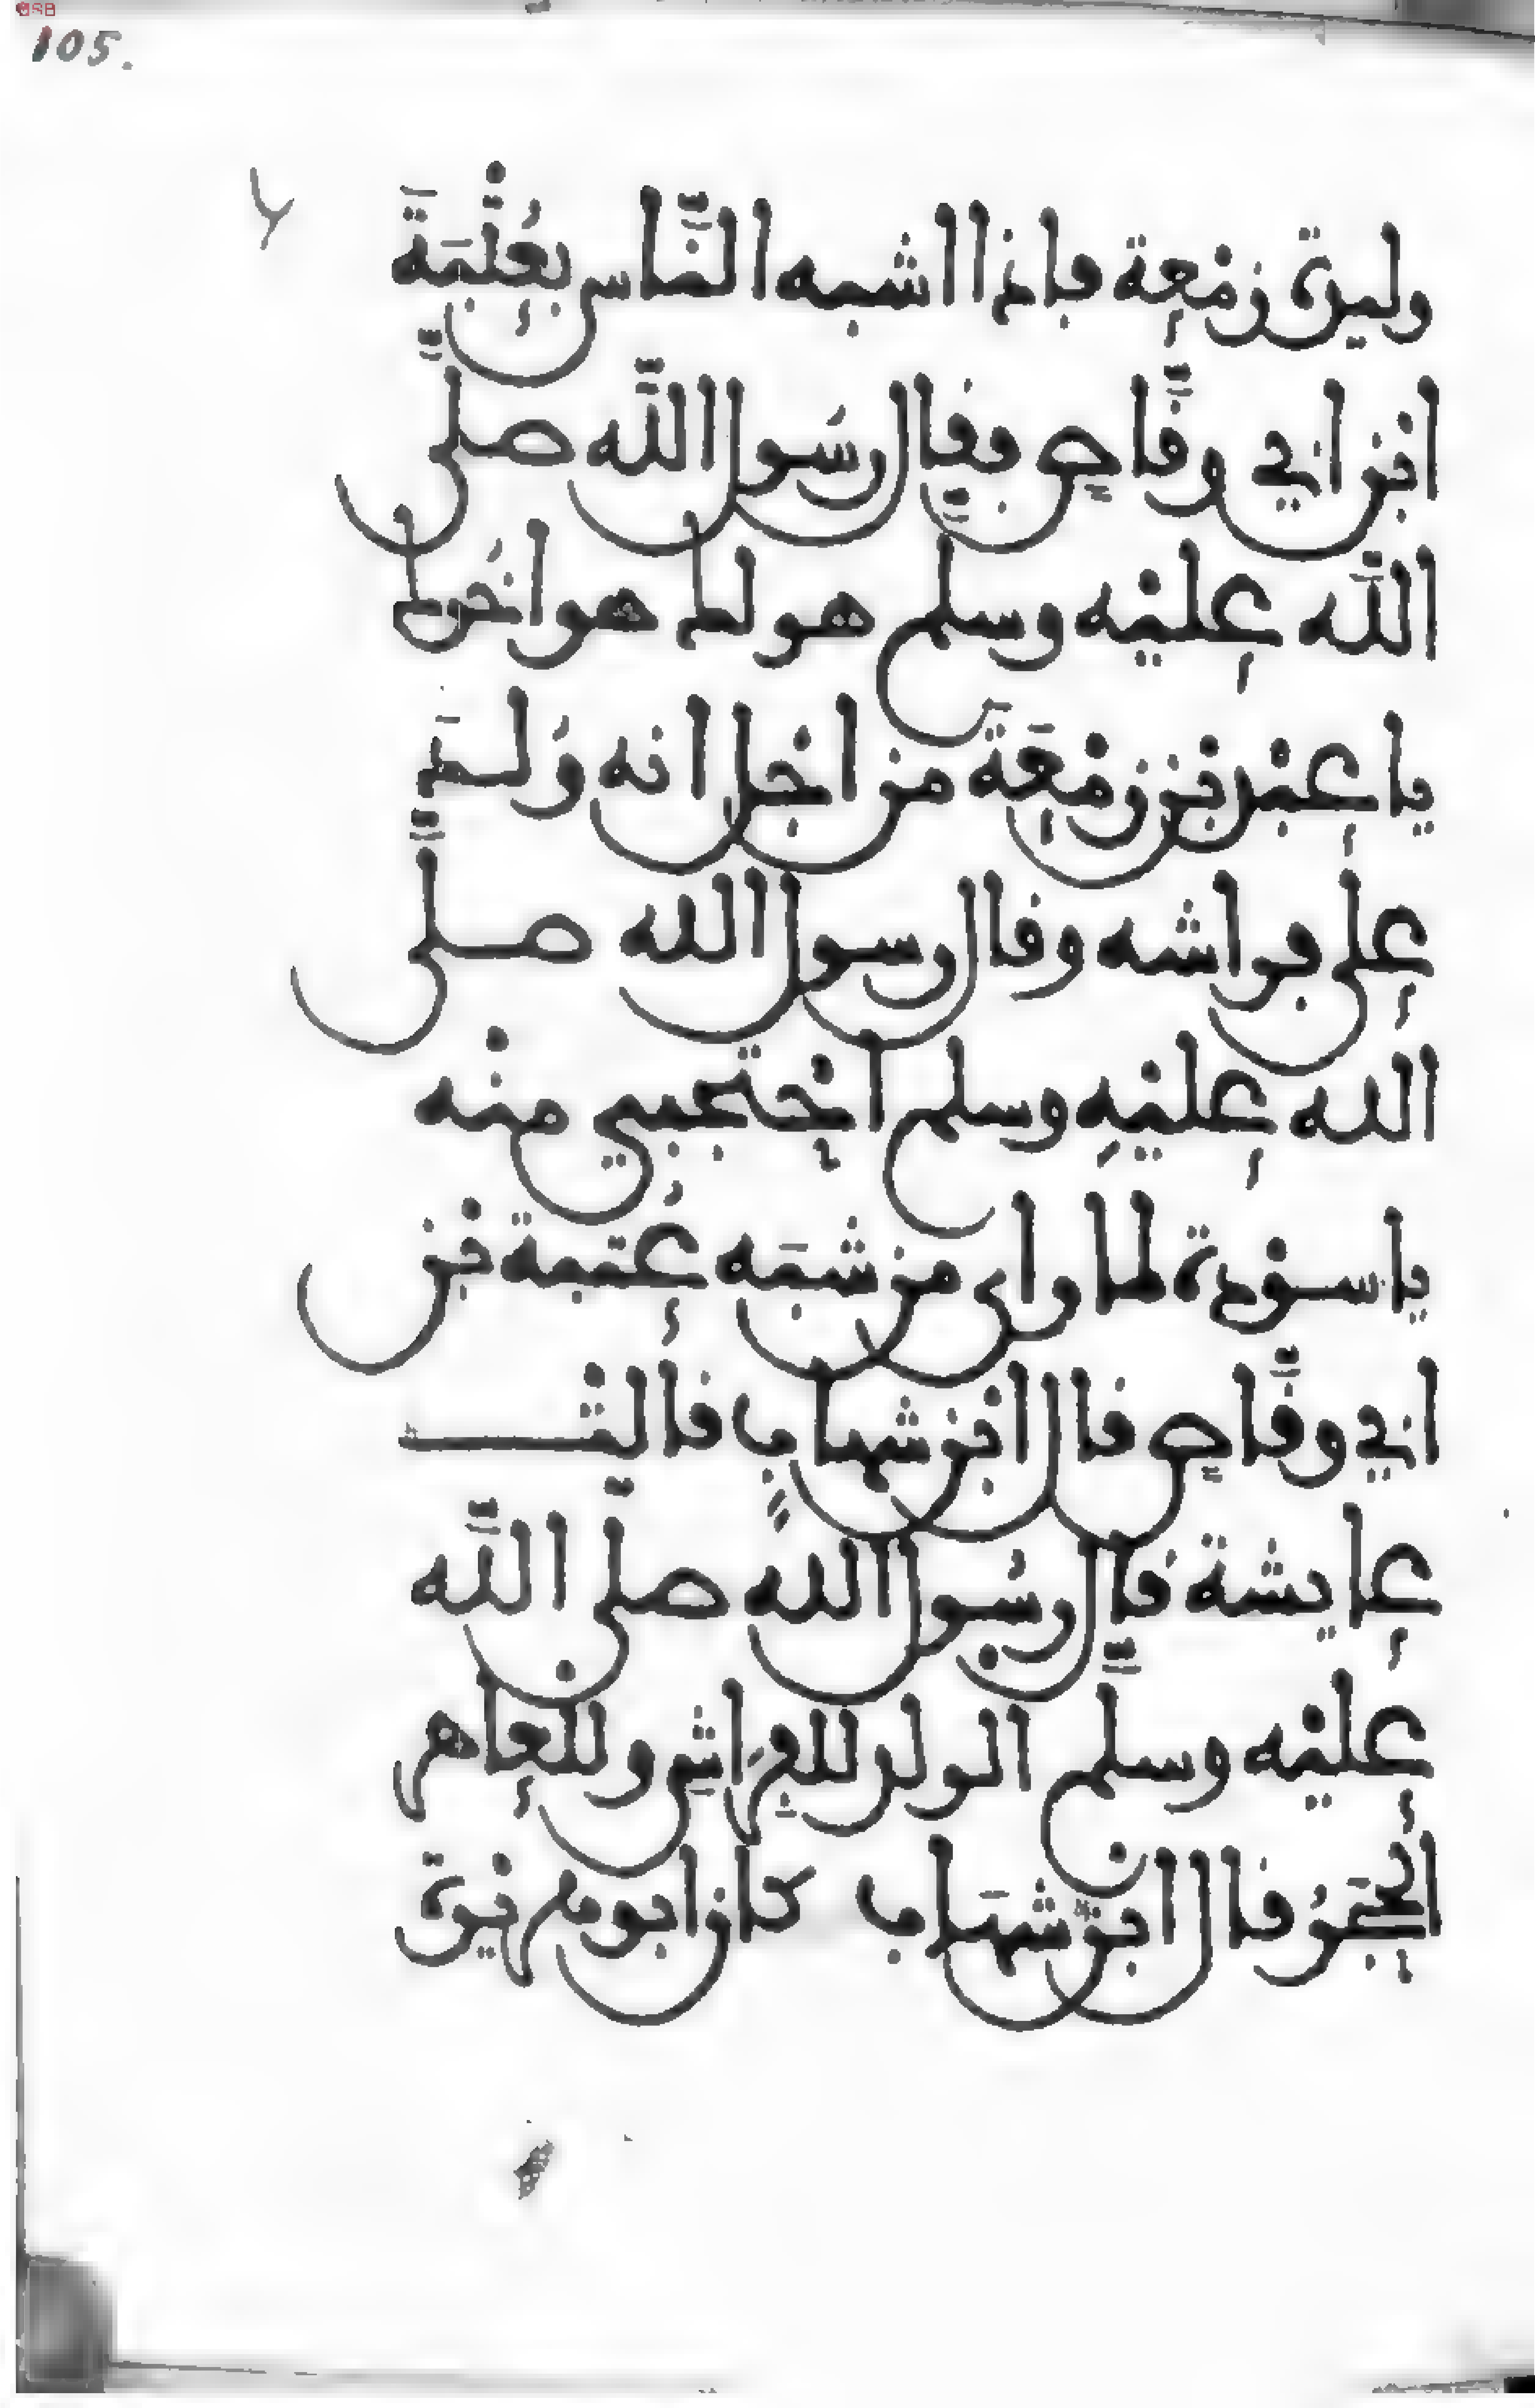 105.
وليدة زمعة فاذا اشبه النَّاس بعُتْبَةَ
ابن ابي وقَّاصٍ فقال رسول اللَّه صلَّى
الله عليْه وسلم هو لك هو اخُوك
يا عبْد بن زمْعَةَ من اجْل انه وُلدَ
على فراشه وقال رسول الله صلَّى
الله عليْهِ وسلم احْتجبي منْه
يا سوْدة لما راى من شبَه عُتبة بْن
ابي وقَّاصٍ قال ابْن شهابٍ قالتْ
عايشة قال رسُول الله صلّى اللَّه
عليْه وسلَّم الولد للفِرَاشِ وللْعاهر
الحَجَرُ قال ابن شهَاب كان ابو هريْرة